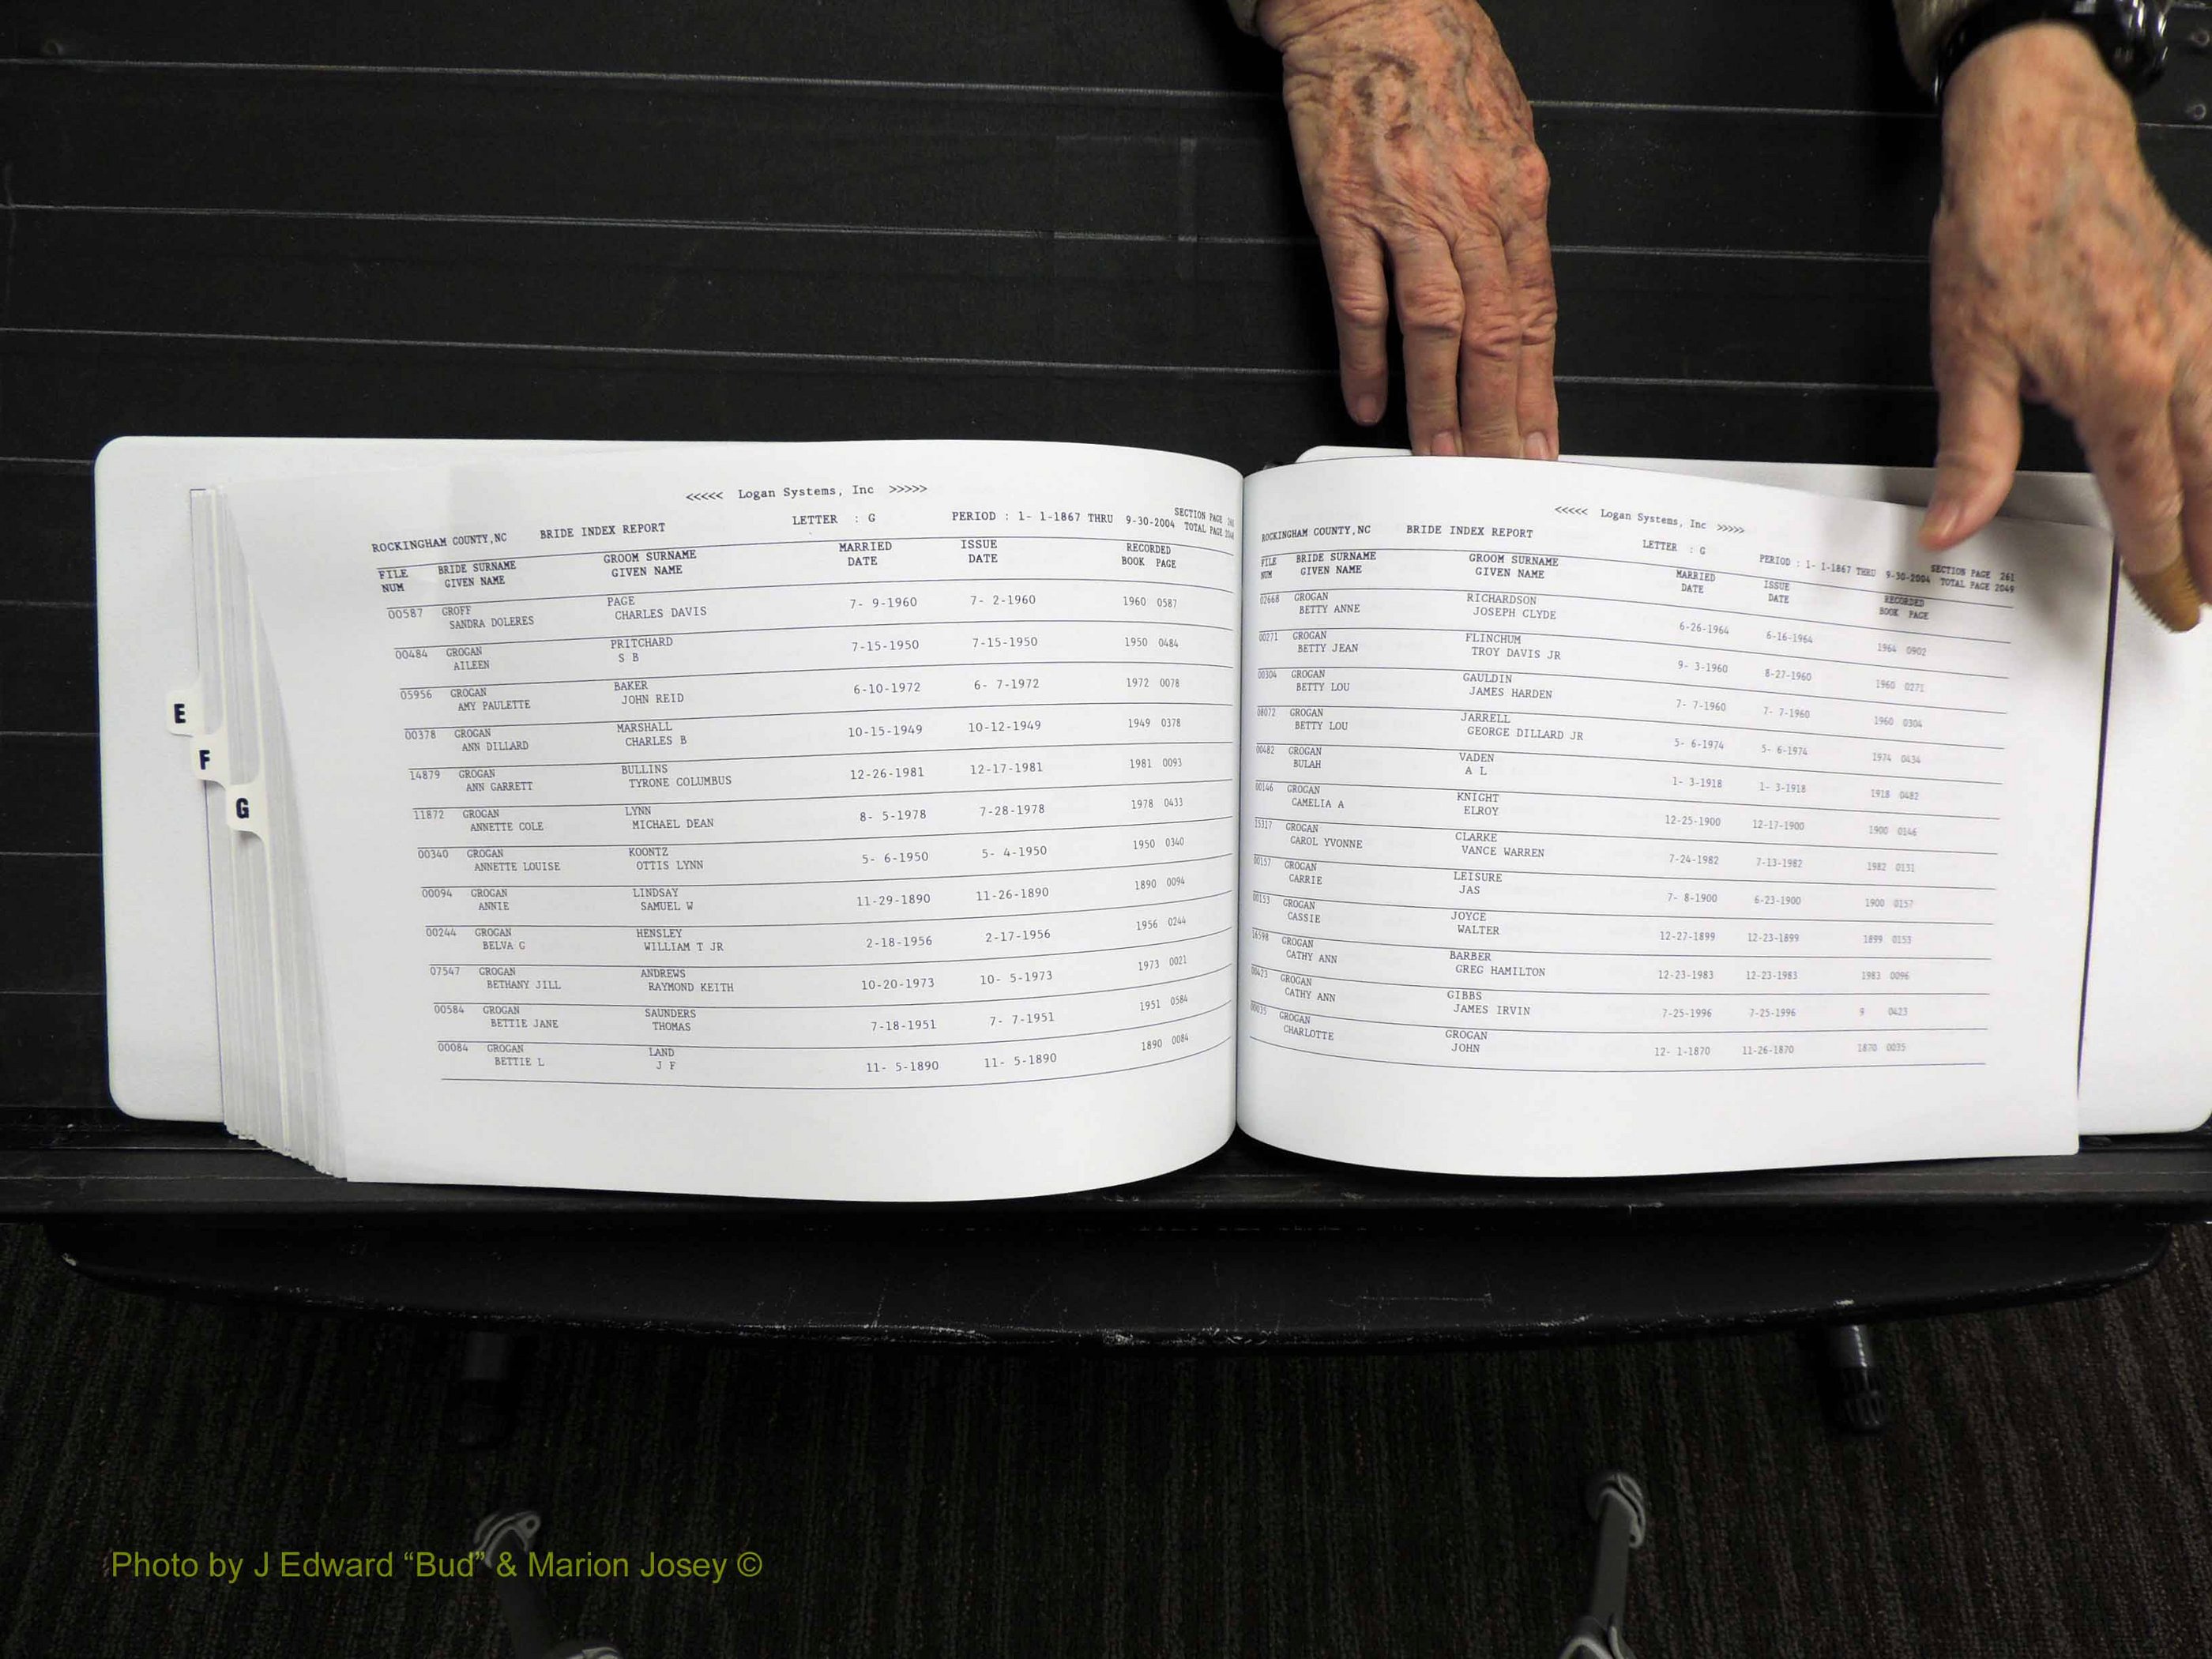 E
F
G
<<<<< Logan Systems, Inc >>>>>
ROCKINGHAM COUNTY,NC BRIDE INDEX REPORT LETTER : G PERIOD : 1- 1-1867 THRU 9-30-2004 SECTION PAGE
TOTAL PAGE
FILE BRIDE SURNAME GROOM SURNAME MARRIED ISSUE RECORDED
NUM GIVEN NAME GIVEN NAME DATE DATE BOOK PAGE
00587 GROFF PAGE 7- 9-1960 7- 2-1960 1960 0587
SANDRA DOLERES CHARLES DAVIS
00484 GROGAN PRITCHARD 7-15-1950 7-15-1950 1950 0484
AILEEN S B
05956 GROGAN BAKER 6-10-1972 6- 7-1972 1972 0078
AMY PAULETTE JOHN REID
00378 GROGAN MARSHALL 10-15-1949 10-12-1949 1949 0378
ANN DILLARD CHARLES B
14879 GROGAN BULLINS 12-26-1981 12-17-1981 1981 0093
ANN GARRETT TYRONE COLUMBUS
11872 GROGAN LYNN 8- 5-1978 7-28-1978 1978 0433
ANNETTE COLE MICHAEL DEAN
00340 GROGAN KOONTZ 5- 6-1950 5- 4-1950 1950 0340
ANNETTE LOUISE OTTIS LYNN
00094 GROGAN LINDSAY 11-29-1890 11-26-1890 1890 0094
ANNIE SAMUEL W
00244 GROGAN HENSLEY 2-18-1956 2-17-1956 1956 0244
BELVA G WILLIAM T JR
07547 GROGAN ANDREWS 10-20-1973 10- 5-1973 1973 0021
BETHANY JILL RAYMOND KEITH
00584 GROGAN SAUNDERS 7-18-1951 7- 7-1951 1951 0584
BETTIE JANE THOMAS
00084 GROGAN LAND 11- 5-1890 11- 5-1890 1890 0084
BETTIE L J F
<<<<< Logan Systems, Inc >>>>>
ROCKINGHAM COUNTY,NC BRIDE INDEX REPORT LETTER : G PERIOD : 1- 1-1867 THRU 9-30-2004 SECTION PAGE 261
TOTAL PAGE 2049
FILE BRIDE SURNAME GROOM SURNAME MARRIED ISSUE RECORDED
NUM GIVEN NAME GIVEN NAME DATE DATE BOOK PAGE
02668 GROGAN RICHARDSON 6-26-1964 6-16-1964 1964 0902
BETTY ANNE JOSEPH CLYDE
00271 GROGAN FLINCHUM 9- 3-1960 8-27-1960 1960 0271
BETTY JEAN TROY DAVIS JR
00304 GROGAN GAULDIN 7- 7-1960 7- 7-1960 1960 0304
BETTY LOU JAMES HARDEN
08072 GROGAN JARRELL 5- 6-1974 5- 6-1974 1974 0434
BETTY LOU GEORGE DILLARD JR
00482 GROGAN VADEN 1- 3-1918 1- 3-1918 1918 0482
BULAH A L
00146 GROGAN KNIGHT 12-25-1900 12-17-1900 1900 0146
CAMELIA A ELROY
15317 GROGAN CLARKE 7-24-1982 7-13-1982 1982 0131
CAROL YVONNE VANCE WARREN
00157 GROGAN LEISURE 7- 8-1900 6-23-1900 1900 0157
CARRIE JAS
00153 GROGAN JOYCE 12-27-1899 12-23-1899 1899 0153
CASSIE WALTER
16598 GROGAN BARBER 12-23-1983 12-23-1983 1983 0096
CATHY ANN GREG HAMILTON
00423 GROGAN GIBBS 7-25-1996 7-25-1996 9 0423
CATHY ANN JAMES IRVIN
00035 GROGAN GROGAN 12- 1-1870 11-26-1870 1870 0035
CHARLOTTE JOHN
Photo by J Edward “Bud” & Marion Josey ©